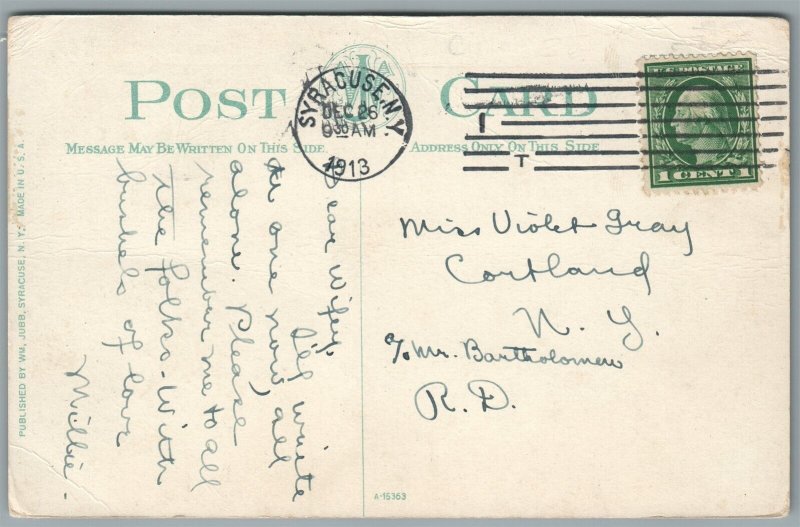 POST CARD
MESSAGE MAY BE WRITTEN ON THIS SIDE.
ADDRESS ONLY ON THIS SIDE.
SYRACUSE, N.Y.
DEC 26
930 AM
1913
1 T
U.S. POSTAGE
1 CENT 1
Dear Wifey,
I'll write
at one now, all
alone. Please
remember me to all
the folks. With
bushels of love
Millie.
Miss Violet Gray
Cortland
N. Y.
c/o Mr. Bartholomew
R. D.
PUBLISHED BY WM. JUBB, SYRACUSE, N. Y. MADE IN U. S. A.
A-15353